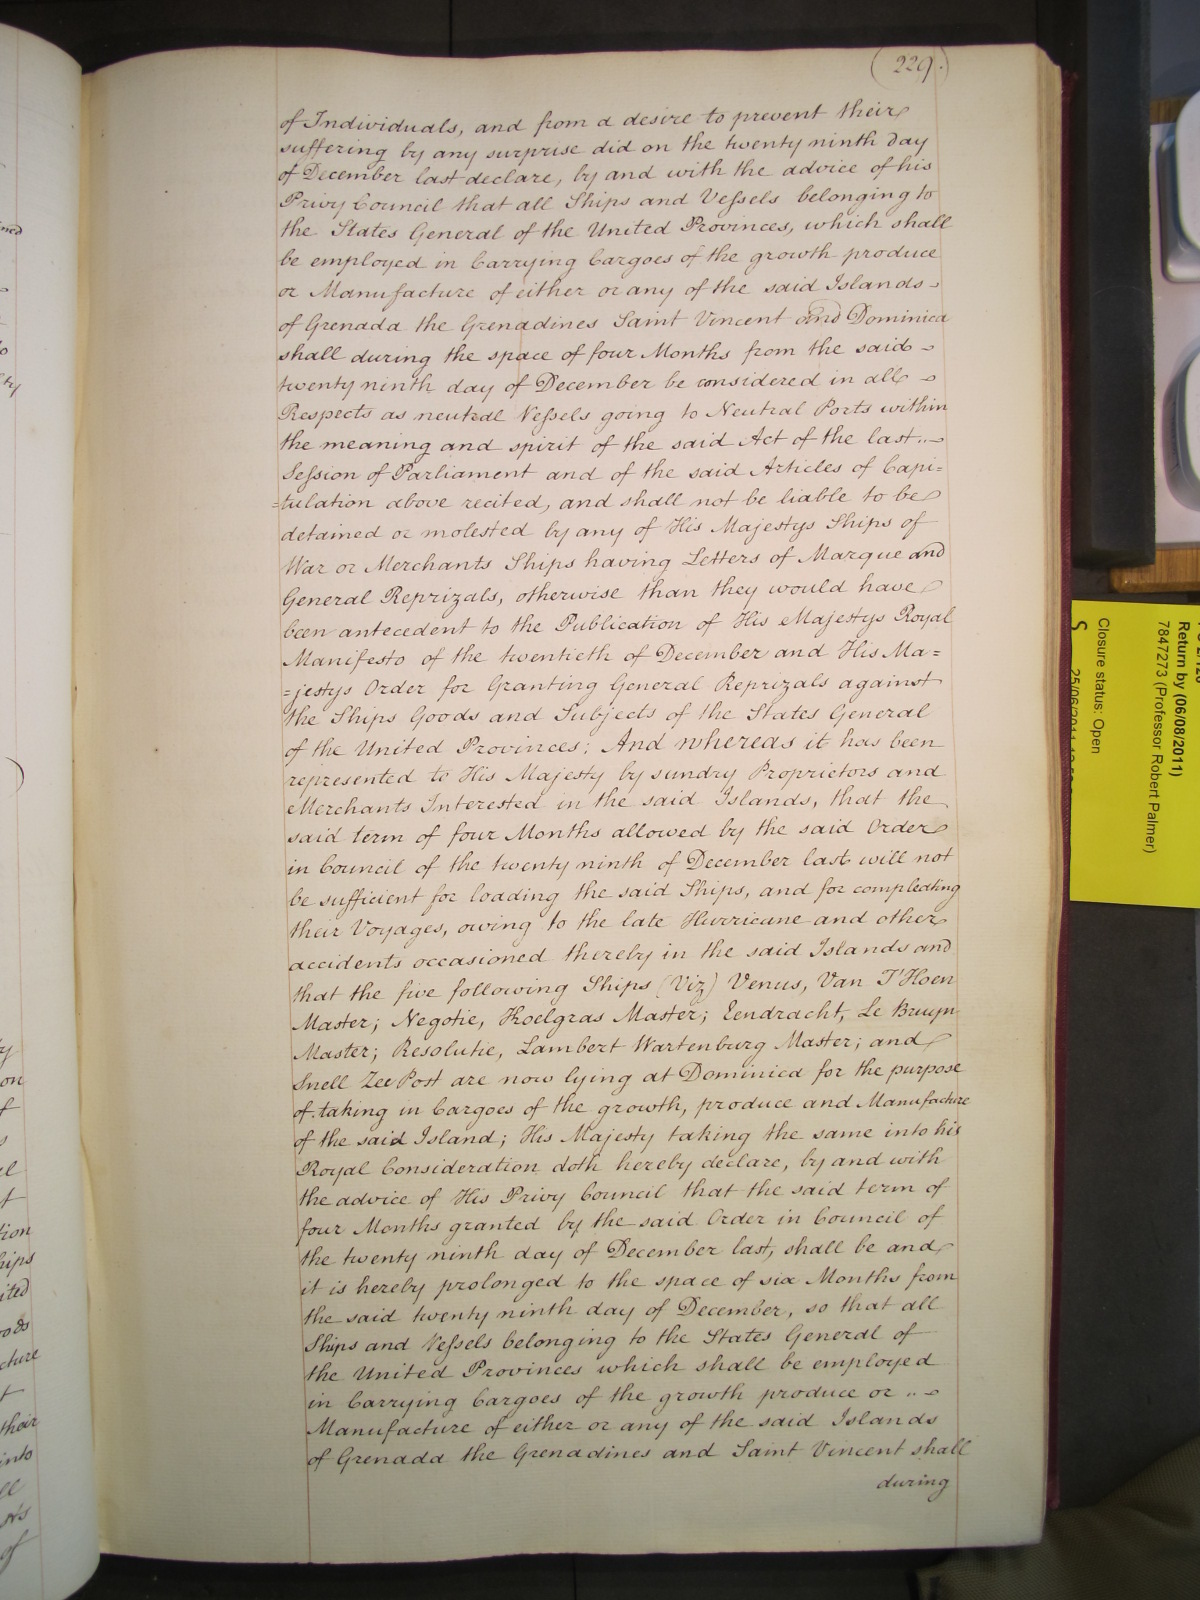 (229.)
of Individuals, and from a desire to prevent their
suffering by any surprise did on the twenty ninth day
of December last declare, by and with the advice of his
Privy Council that all Ships and Vessels belonging to
the States General of the United Provinces, which shall
be employed in Carrying Cargoes of the growth produce
or Manufacture of either or any of the said Islands
of Grenada the Grenadines Saint Vincent and Dominica
shall during the space of four Months from the said
twenty ninth day of December be considered in all
Respects as neutral Vessels going to Neutral Ports within
the meaning and spirit of the said Act of the last
Session of Parliament and of the said Articles of Capi=
=tulation above recited, and shall not be liable to be
detained or molested by any of His Majestys Ships of
War or Merchants Ships having Letters of Marque and
General Reprizals, otherwise than they would have
been antecedent to the Publication of His Majestys Royal
Manifesto of the twentieth of December and His Ma=
=jestys Order for Granting General Reprizals against
the Ships Goods and Subjects of the States General
of the United Provinces; And whereas it has been
represented to His Majesty by sundry Proprietors and
Merchants Interested in the said Islands, that the
said term of four Months allowed by the said Order
in Council of the twenty ninth of December last will not
be sufficient for loading the said Ships, and for compleating
their Voyages, owing to the late Hurricane and other
accidents occasioned thereby in the said Islands and
that the five following Ships (Viz) Venus, Van T'Hoen
Master; Negotie, Hoelgras Master; Eendracht, Le Bruyn
Master; Resolutie, Lambert Wartenburg Master; and
Snell Zee Post are now lying at Dominica for the purpose
of taking in Cargoes of the growth, produce and Manufacture
of the said Island; His Majesty taking the same into his
Royal Consideration doth hereby declare, by and with
the advice of His Privy Council that the said term of
four Months granted by the said Order in Council of
the twenty ninth day of December last, shall be and
it is hereby prolonged to the space of six Months from
the said twenty ninth day of December, so that all
Ships and Vessels belonging to the States General of
the United Provinces which shall be employed
in Carrying Cargoes of the growth produce or
Manufacture of either or any of the said Islands
of Grenada the Grenadines and Saint Vincent shall
during
Return by (06/08/2011)
7847273 (Professor Robert Palmer)
Closure status: Open